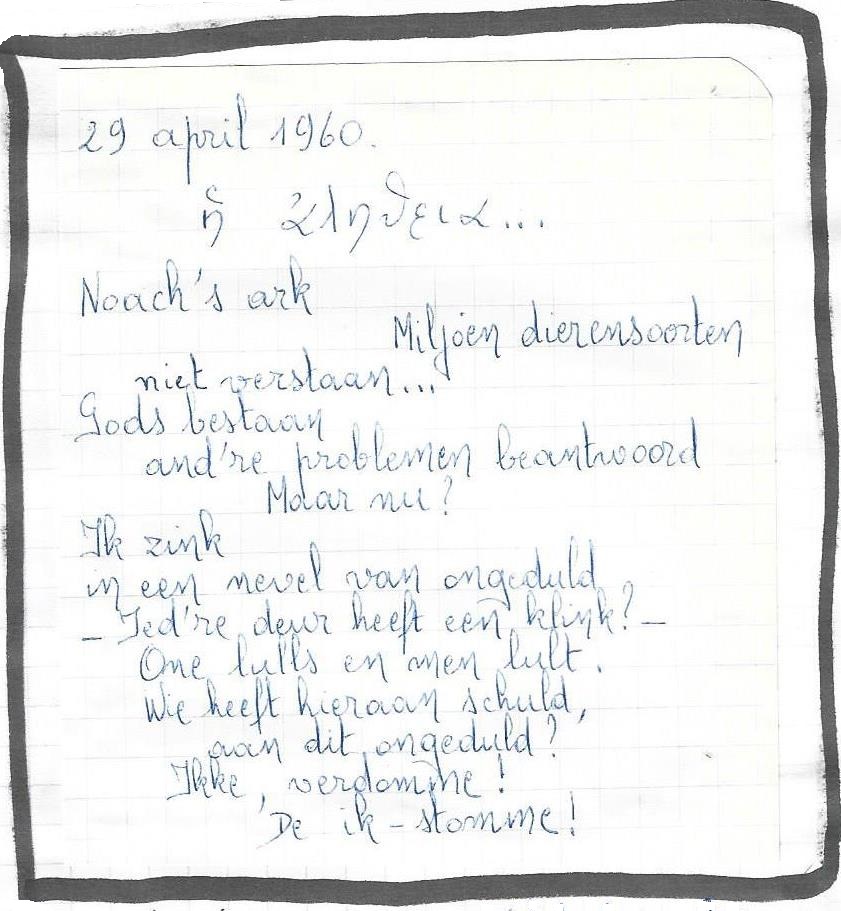 29 april 1960.
ἡ ἀληθεια...
Noach's ark
Miljoen dierensoorten
niet verstaan...
Gods bestaan
and're problemen beantwoord
Maar nu?
Ik zink
in een nevel van ongeduld
- Ied're deur heeft een klink? -
One lulls en men lult.
Wie heeft hieraan schuld,
aan dit ongeduld?
Ikke, verdomme!
De ik-stomme!